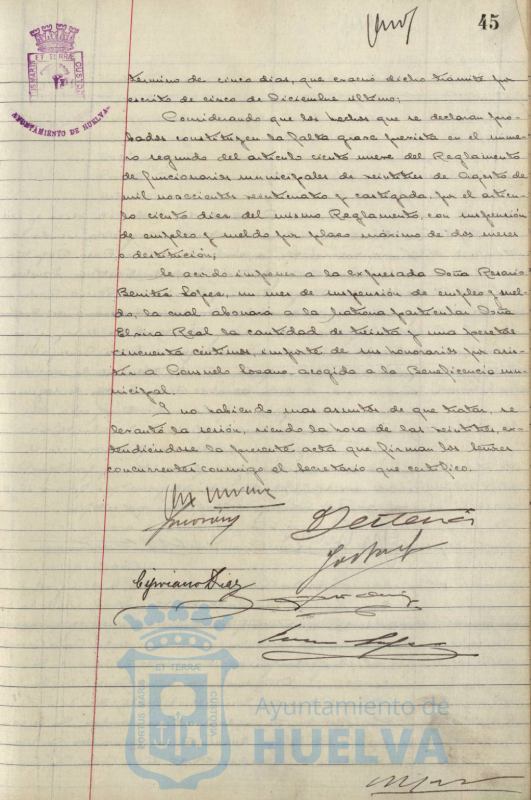 45
PORTUS MARIS ET TERRÆ CUSTODIA
AYUNTAMIENTO DE HUELVA
término de cinco días, que evacuó dicho trámite por
escrito de cinco de Diciembre último;
Considerando que los hechos que se declaran pro-
bados constituyen la falta grave prevista en el nume-
ro segundo del artículo ciento nueve del Reglamento
de funcionarios municipales de veintitres de Agosto de
mil novecientos veinticuatro y castigada, por el artícu-
lo ciento diez del mismo Reglamento, con suspensión
de empleo y sueldo por plazo máximo de dos meses
o destitución;
Se acordó imponer a la expresada Doña Rosario
Benitez Lopez, un mes de suspensión de empleo y suel-
do, la cual abonará a la matrona particular Doña
Elvira Real la cantidad de treinta y una pesetas
cincuenta centimos, importe de sus honorarios por asis-
tir a Consuelo Lozano, acogida a la Beneficencia mu-
nicipal.
Y no habiendo mas asuntos de que tratar, se
levantó la sesión, siendo la hora de las veintitres, ex-
tendiéndose la presente acta que firman los señores
concurrentes conmigo el Secretario que certifico.
Cipriano Diaz
PORTUS MARIS ET TERRÆ CUSTODIA
Ayuntamiento de
HUELVA